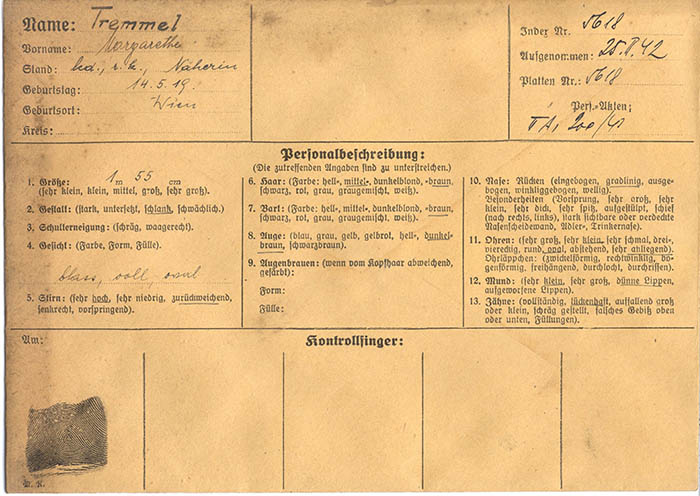 Name: Tremmel
Vorname: Margarethe
Stand: led., r.k., Näherin
Geburtstag: 14.5.19.
Geburtsort: Wien
Kreis:
Index Nr. 5618
Aufgenommen: 25.II.42
Platten Nr.: 5618
Pers.-Akten:
II A1 200/41
Personalbeschreibung:
(Die zutreffenden Angaben sind zu unterstreichen.)
1. Größe: 1 m 55 cm
(sehr klein, klein, mittel, groß, sehr groß).
2. Gestalt: (stark, untersetzt, schlank, schwächlich).
3. Schulterneigung: (schräg, waagerecht).
4. Gesicht: (Farbe, Form, Fülle).
blass, voll, oval
5. Stirn: (sehr hoch, sehr niedrig, zurückweichend,
senkrecht, vorspringend).
6. Haar: (Farbe: hell-, mittel-, dunkelblond, -braun,
schwarz, rot, grau, graugemischt, weiß).
7. Bart: (Farbe: hell-, mittel-, dunkelblond, -braun,
schwarz, rot, grau, graugemischt, weiß).
8. Auge: (blau, grau, gelb, gelbrot, hell-, dunkel-
braun, schwarzbraun).
9. Augenbrauen: (wenn vom Kopfhaar abweichend,
gefärbt):
Form:
Fülle:
10. Nase: Rücken (eingebogen, gradlinig, ausge-
bogen, winkliggebogen, wellig).
Besonderheiten (Vorsprung, sehr groß, sehr
klein, sehr dick, sehr spitz, aufgestülpt, schief
(nach rechts, links), stark sichtbare oder verdeckte
Nasenscheidewand, Adler-, Trinkernase).
11. Ohren: (sehr groß, sehr klein, sehr schmal, drei-
viereckig, rund, oval, abstehend, sehr anliegend).
Ohrläppchen: (zwickelförmig, rechtwinklig, bo-
genförmig, freihängend, durchlocht, durchrissen).
12. Mund: (sehr klein, sehr groß, dünne Lippen,
aufgeworfene Lippen).
13. Zähne: (vollständig, lückenhaft, auffallend groß
oder klein, schräg gestellt, falsches Gebiß oben
oder unten, Füllungen).
Am:
Kontrollfinger: